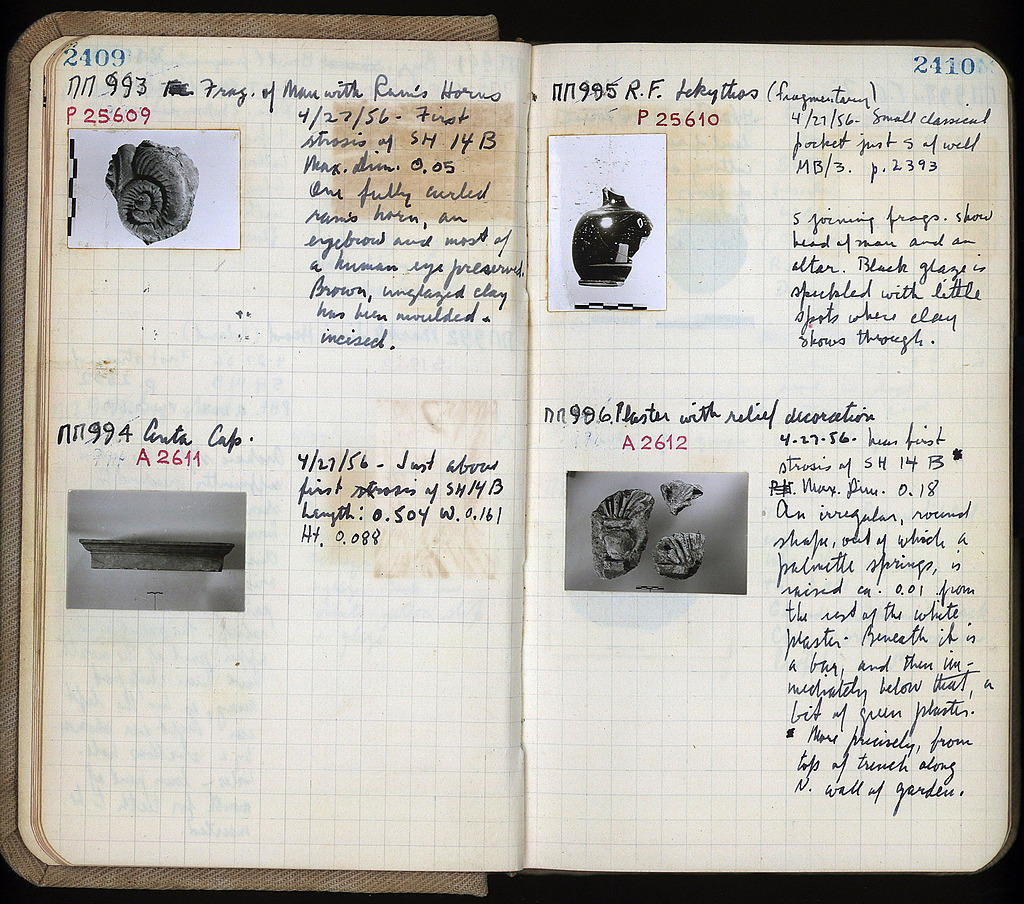 2409
ΠΠ 993 Frag. of Man with Ram's Horns
P 25609
4/27/56 - First
strosis of SH 14 B
Max. dim. 0.05
One fully curled
ram's horn, an
eyebrow and most of
a human eye preserved.
Brown, unglazed clay
has been moulded &
incised.
ΠΠ 994 Anta Cap.
A 2611
4/27/56 - Just above
first strosis of SH 14 B
Length: 0.504 W. 0.161
Ht. 0.088
2410
ΠΠ 995 R.F. Lekythos (fragmentary)
P 25610
4/27/56 - Small classical
pocket just S of well
MB/3. p. 2393
5 joining frags. show
head of man and an
altar. Black glaze is
speckled with little
spots where clay
shows through.
ΠΠ 996. Plaster with relief decoration
A 2612
4-27-56. Near first
strosis of SH 14 B *
Max. Dim. 0.18
An irregular, round
shape, out of which a
palmette springs, is
raised ca. 0.01 from
the rest of the white
plaster. Beneath it is
a bar, and then im-
mediately below that, a
bit of green plaster.
* More precisely, from
top of trench along
N. wall of garden.